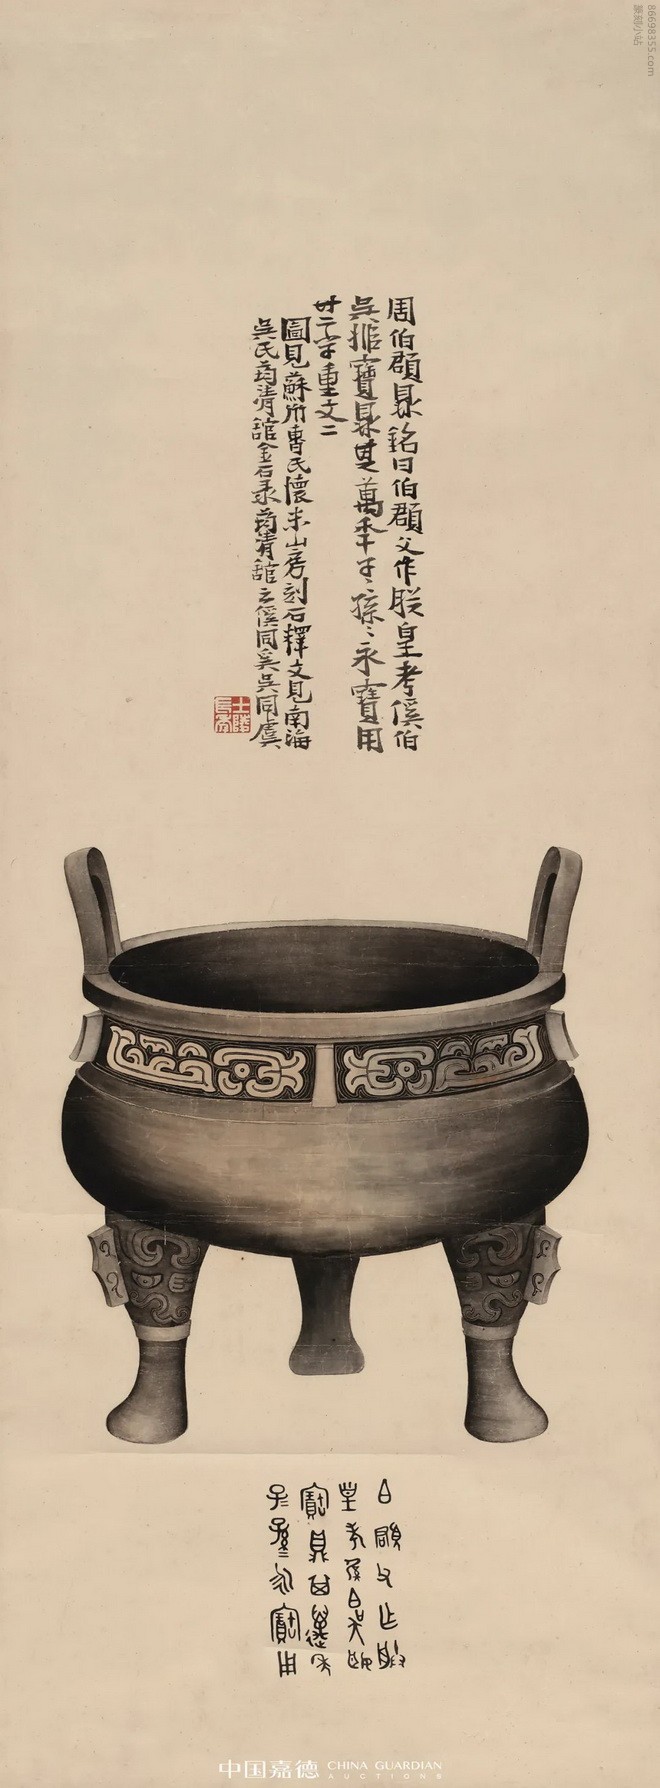 周伯頵鼎銘曰伯頵父作朕皇考傒伯
吳姬寶鼎其萬年子〻孫〻永寶用
廿二字重文二
圖見蘇州曹氏懷米山房刻石釋文見南海
吳氏筠清館金石录筠清館云傒同奚吳同虞
士陵長壽
白頵父乍朕
皇考白吳姬
寶鼎其萬年
子〻孫〻永寶用
中国嘉德 CHINA GUARDIAN
AUCTIONS
86698355.com
篆刻小站